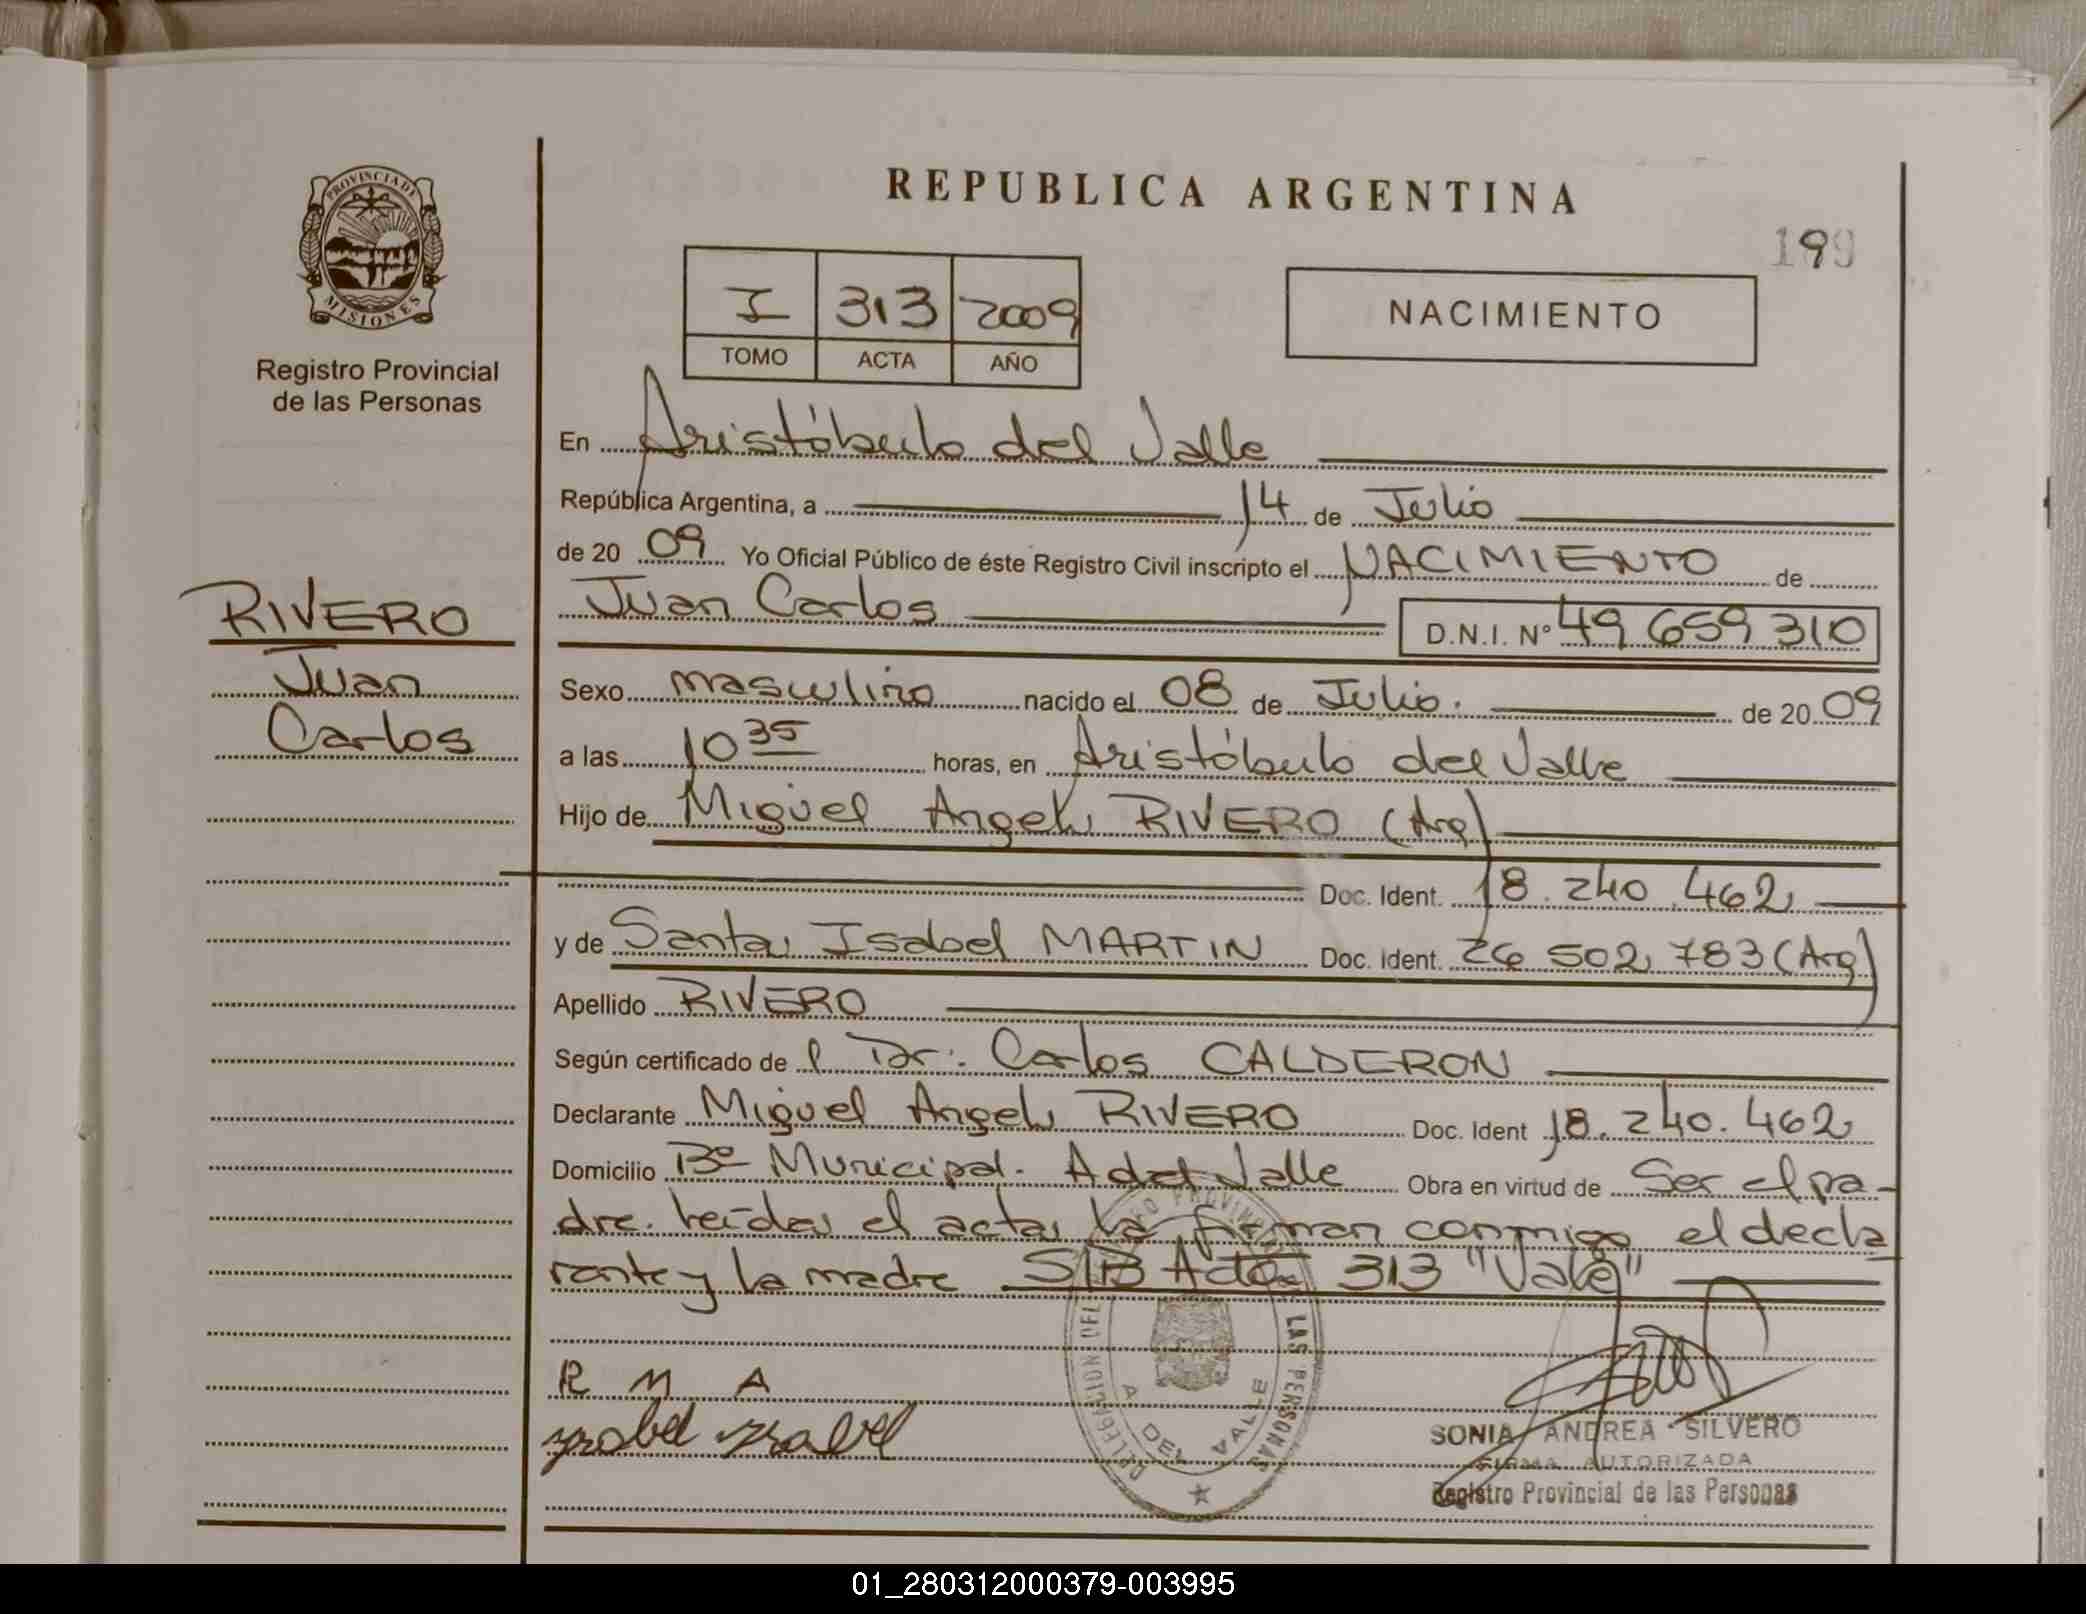 PROVINCIA DE
MISIONES
Registro Provincial
de las Personas
RIVERO
Juan
Carlos
REPUBLICA ARGENTINA
199
I 313 2009
TOMO ACTA AÑO
NACIMIENTO
En Aristóbulo del Valle
República Argentina, a 14 de Julio
de 20 09 Yo Oficial Público de éste Registro Civil inscripto el NACIMIENTO de
Juan Carlos D.N.I. Nº 49 659 310
Sexo masculino nacido el 08 de Julio. de 20 09
a las 10 35 horas, en Aristóbulo del Valle
Hijo de Miguel Angel RIVERO (Arg)
Doc. Ident. 18.240.462
y de Santa Isabel MARTIN Doc. Ident. 26 502 783 (Arg)
Apellido RIVERO
Según certificado de l Dr. Carlos CALDERON
Declarante Miguel Angel RIVERO Doc. Ident 18.240.462
Domicilio Bº Municipal. A del Valle Obra en virtud de Ser el pa-
dre. Leída el acta la firman conmigo el decla
rante y la madre S/B Acta 313 "Vale"
R M A
Ysabel Ysabel
DELEGACION DEL LAS PERSONAS
A DEL VALLE
SONIA ANDREA SILVERO
FIRMA AUTORIZADA
Registro Provincial de las Personas
01_280312000379-003995